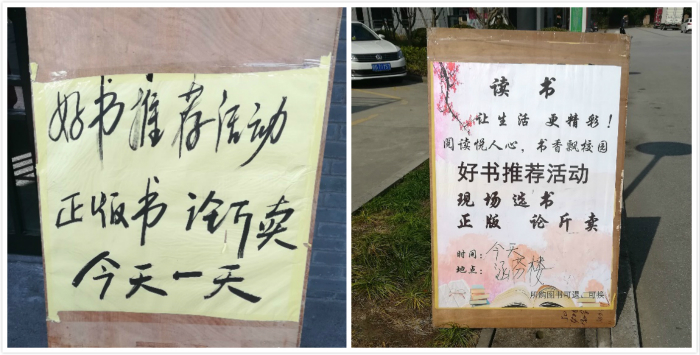 好书推荐活动
正版书 论斤卖
今天一天
读书
让生活 更精彩！
阅读悦人心，书香飘校园
好书推荐活动
现场选书
正版 论斤卖
时间：今天
地点：涵芬楼
所购图书可退、可换